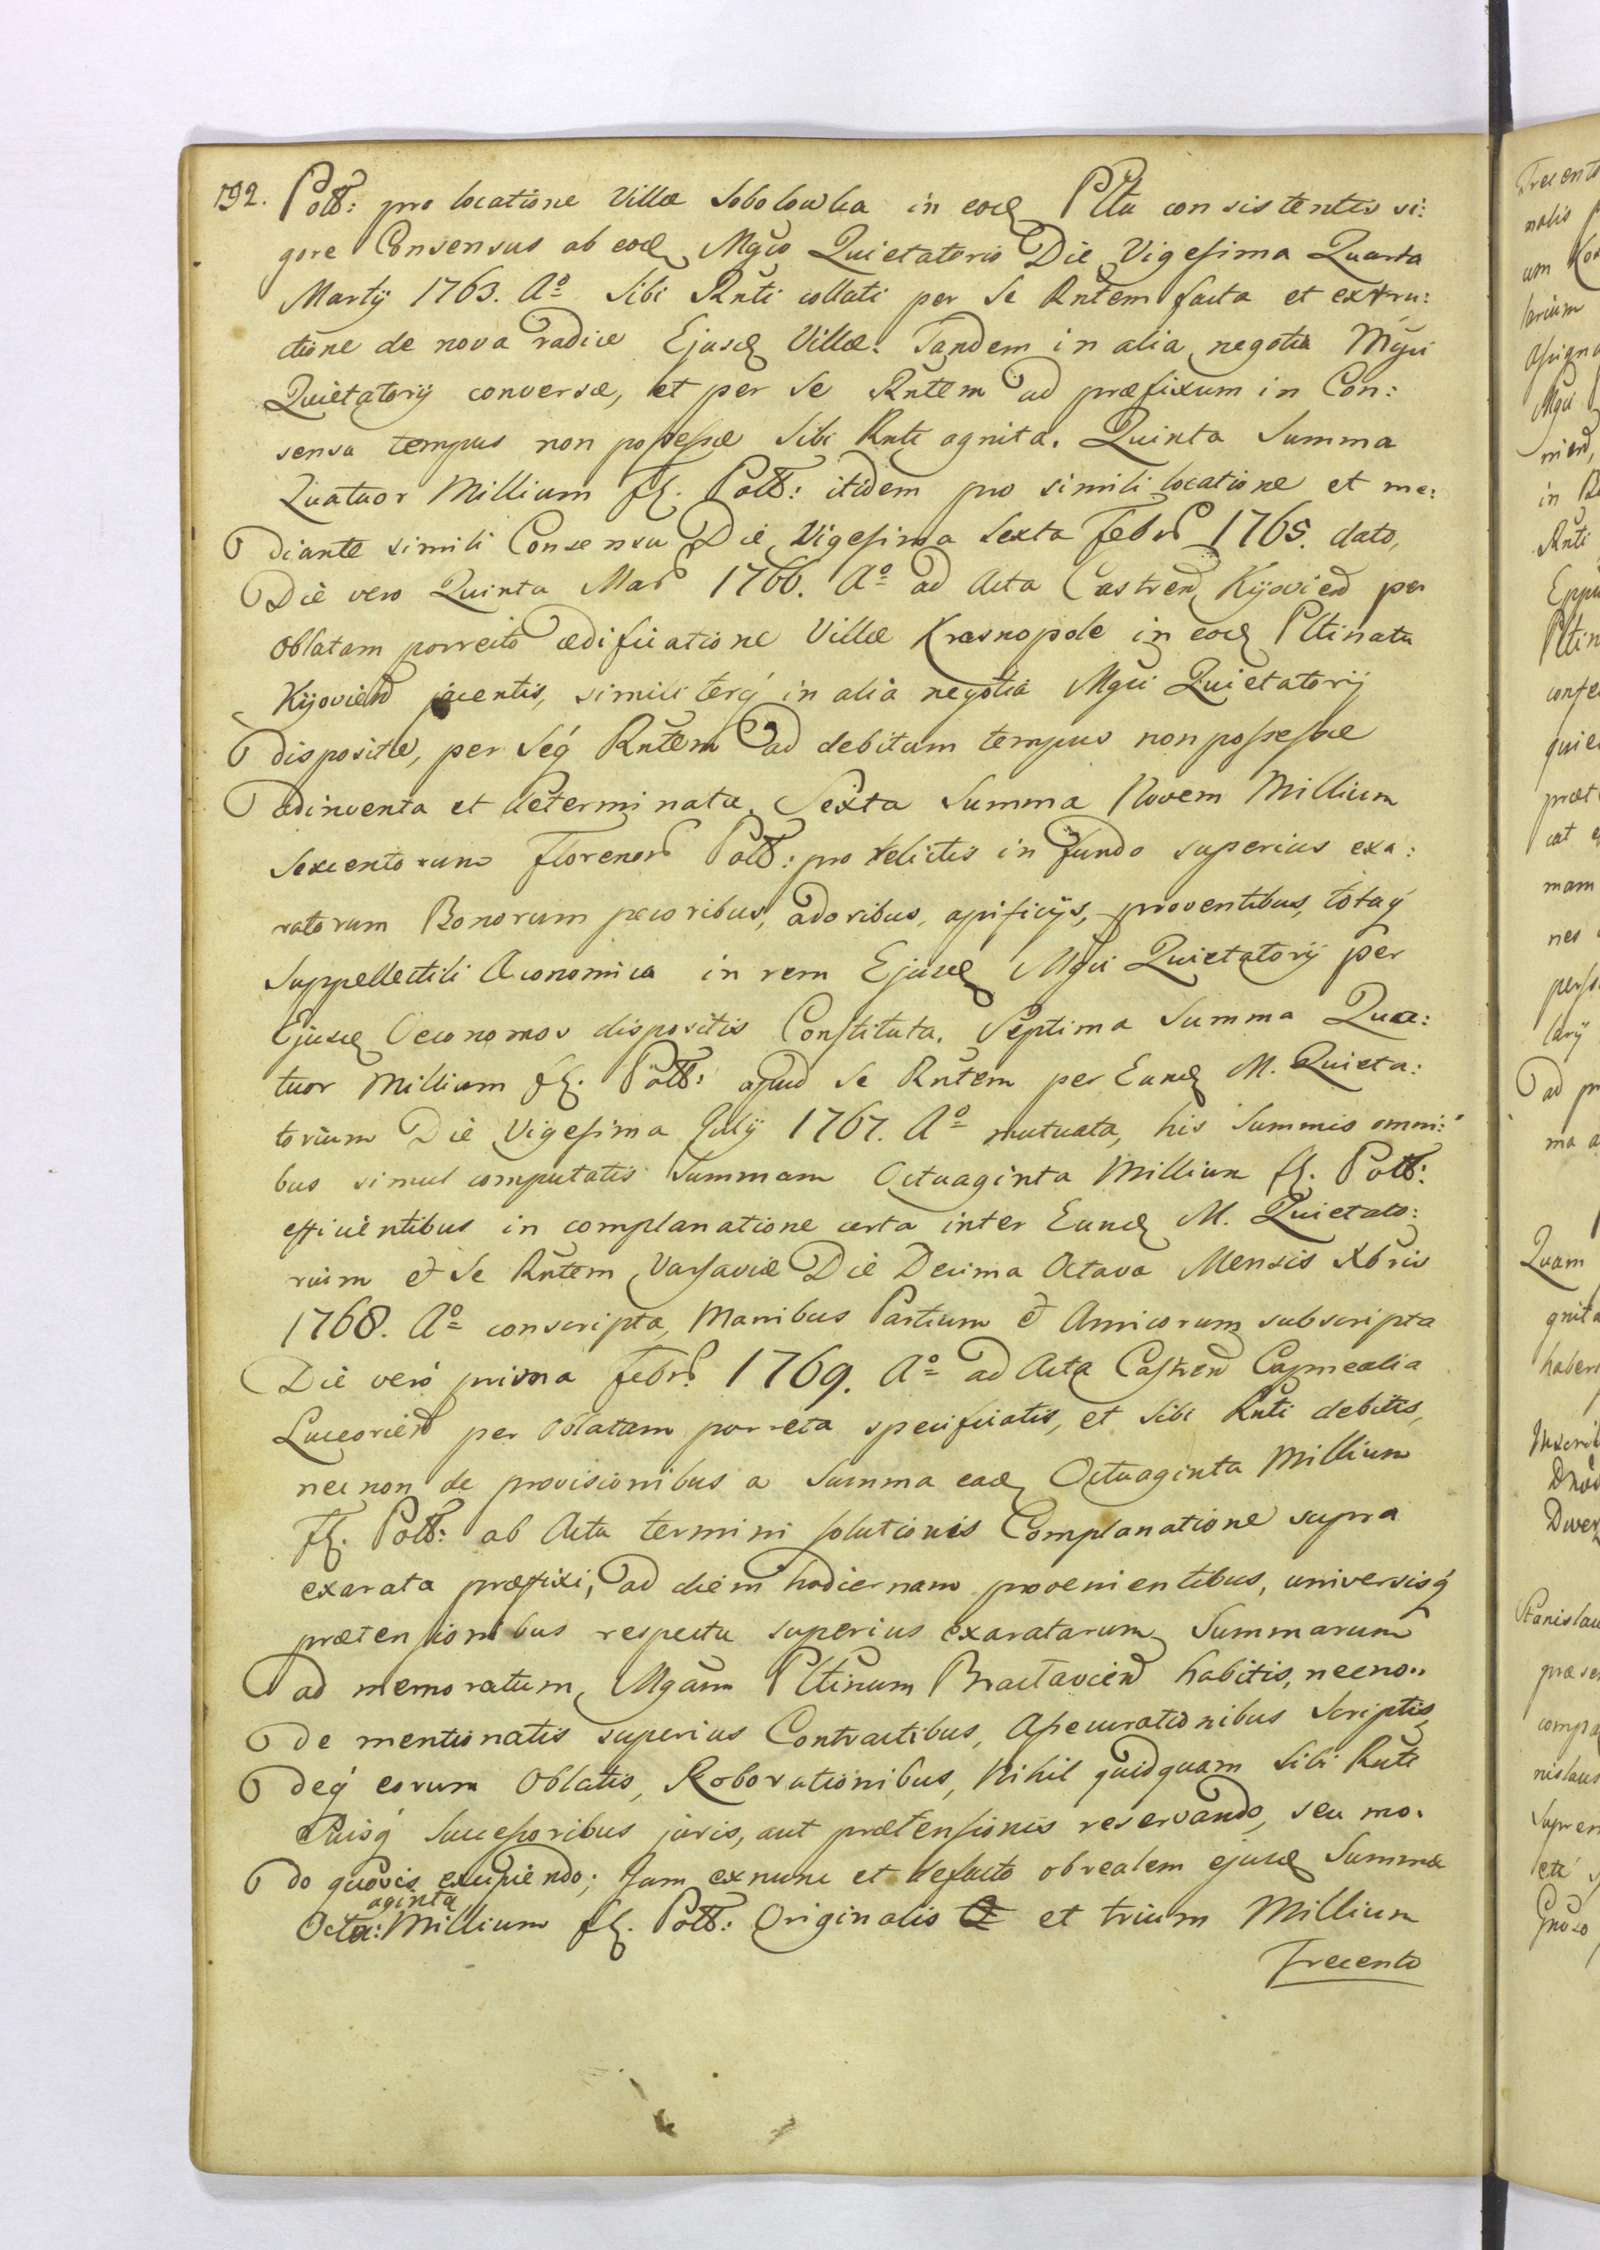 192. Poll: pro locatione Villæ Sobolowka in eod Pltu consistentis vi:
gore Consensus ab eod Mgco Quietatorio Die Vigesima Quarta
Martij 1763. Aº Sibi Rnti collati per Se Rntem facta et extru:
ctione de nova radice Ejusd Villæ. Tandem in alia negotia Mgci
Quietatorij conversæ, et per Se Rntem ad præfixum in Con:
sensu tempus non possessæ Sibi Rnti agnita. Quinta Summa
Quatuor Millium fl. Poll: itidem pro simili locatione et me:
diante simili Consensu Die Vigesima Sexta Febr 1765. dato,
Die vero Quinta Mar 1766. Aº ad Acta Castren Kijovien per
Oblatam porrecto ædificatione Villæ Krasnopole in eod Pltinatu
Kijovien jacentis, similiterq in alia negotia Mgci Quietatorij
dispositæ, per Seq Rntem ad debitum tempus non possessæ
adinventa et determinata. Sexta Summa Novem Millium
Sexcentorum Florenor Poll: pro relictis in fundo superius exa:
ratorum Bonorum pecoribus, adoribus, apificijs, proventibus, totaq
Suppellectili Œconomica in rem Ejusd Mgci Quietatorij per
Ejusd Œconomos dispositis Constituta. Septima Summa Qua:
tuor Millium fl. Poll: apud Se Rntem per Eund M. Quieta:
torium Die Vigesima Julij 1767. Aº mutuata, his Summis omni:
bus simul computatis Summam Octuaginta Millium fl. Poll:
efficientibus in complanatione certa inter Eund M. Quietato:
rium et Se Rntem Varsaviæ Die Decima Octava Mensis Xbris
1768. Aº conscripta, Manibus Partium et Amicorum subscripta
Die vero prima Febr. 1769. Aº ad Acta Castren Capnealia
Luceorien per Oblatam porrecta specificatis, et Sibi Rnti debitis,
necnon de provisionibus a Summa ead Octuaginta Millium
fl. Poll: ab Actu termini solutionis Complanatione supra
exarata præfixi, ad diem hodiernam provenientibus, universisq
prætensionibus respectu superius exaratarum Summarum
ad memoratum Mgcum Pltinum Braclavien habitis, necno..
de mentionatis superius Contractibus, Assecurationibus Scriptis
deq eorum Oblatis, Roborationibus, Nihil quidquam Sibi Rnti
Suisq Successoribus juris, aut prætensionis reservando, seu mo:
do quovis excipiendo; Jam exnunc et defacto obrealem ejusd Summæ
Octu:aginta Millium fl. Poll: Originalis et trium Millium
Trecento